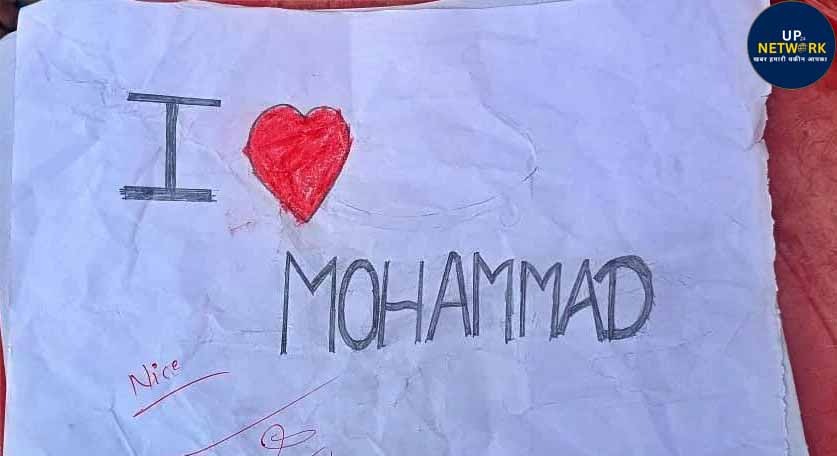 UP24
NETWORK
खबर हमारी यकीन आपका
I
MOHAMMAD
Nice